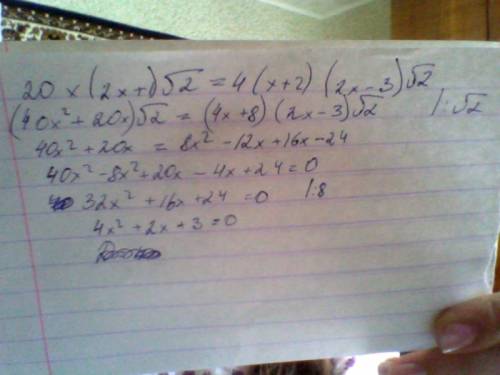 20 x (2x+1)√2 = 4 (x+2) (2x-3)√2
(40x² + 20x)√2 = (4x+8) (2x-3)√2 |:√2
40x² + 20x = 8x² - 12x + 16x - 24
40x² - 8x² + 20x - 4x + 24 = 0
32x² + 16x + 24 = 0 |:8
4x² + 2x + 3 = 0